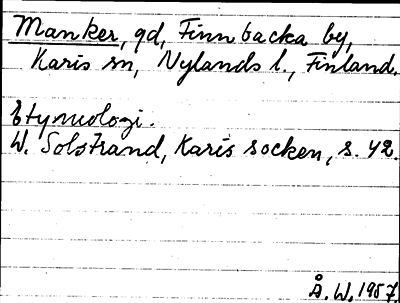 Manker, gd, Finnbacka by,
Karis sn, Nylands l., Finland.
Etymologi.
W. Solstrand, Karis socken, s. 42.
Å. W. 1957.